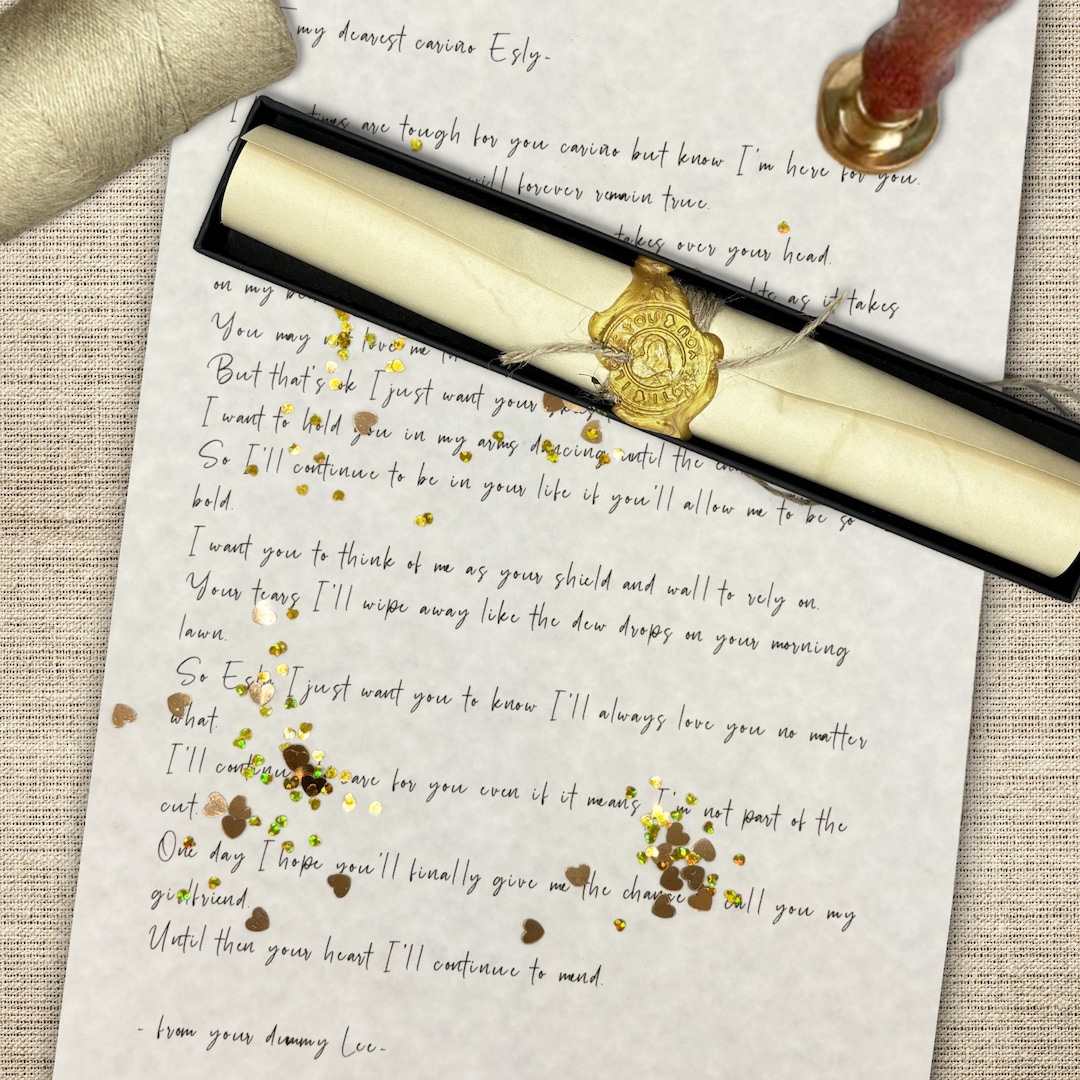 my dearest cariño Esly-
I times are tough for you cariño but know I'm here for you.
will forever remain true.
takes over your head.
on my as it takes
You may not love me
But that's ok I just want your
I want to hold you in my arms dancing until the
So I'll continue to be in your life if you'll allow me to be so
bold.
I want you to think of me as your shield and wall to rely on.
Your tears I'll wipe away like the dew drops on your morning
lawn.
So Esly I just want you to know I'll always love you no matter
what.
I'll continue care for you even if it means I'm not part of the
cut.
One day I hope you'll finally give me the chance call you my
girlfriend.
Until then your heart I'll continue to mend.
- from your dummy Lee-
YOU NOW